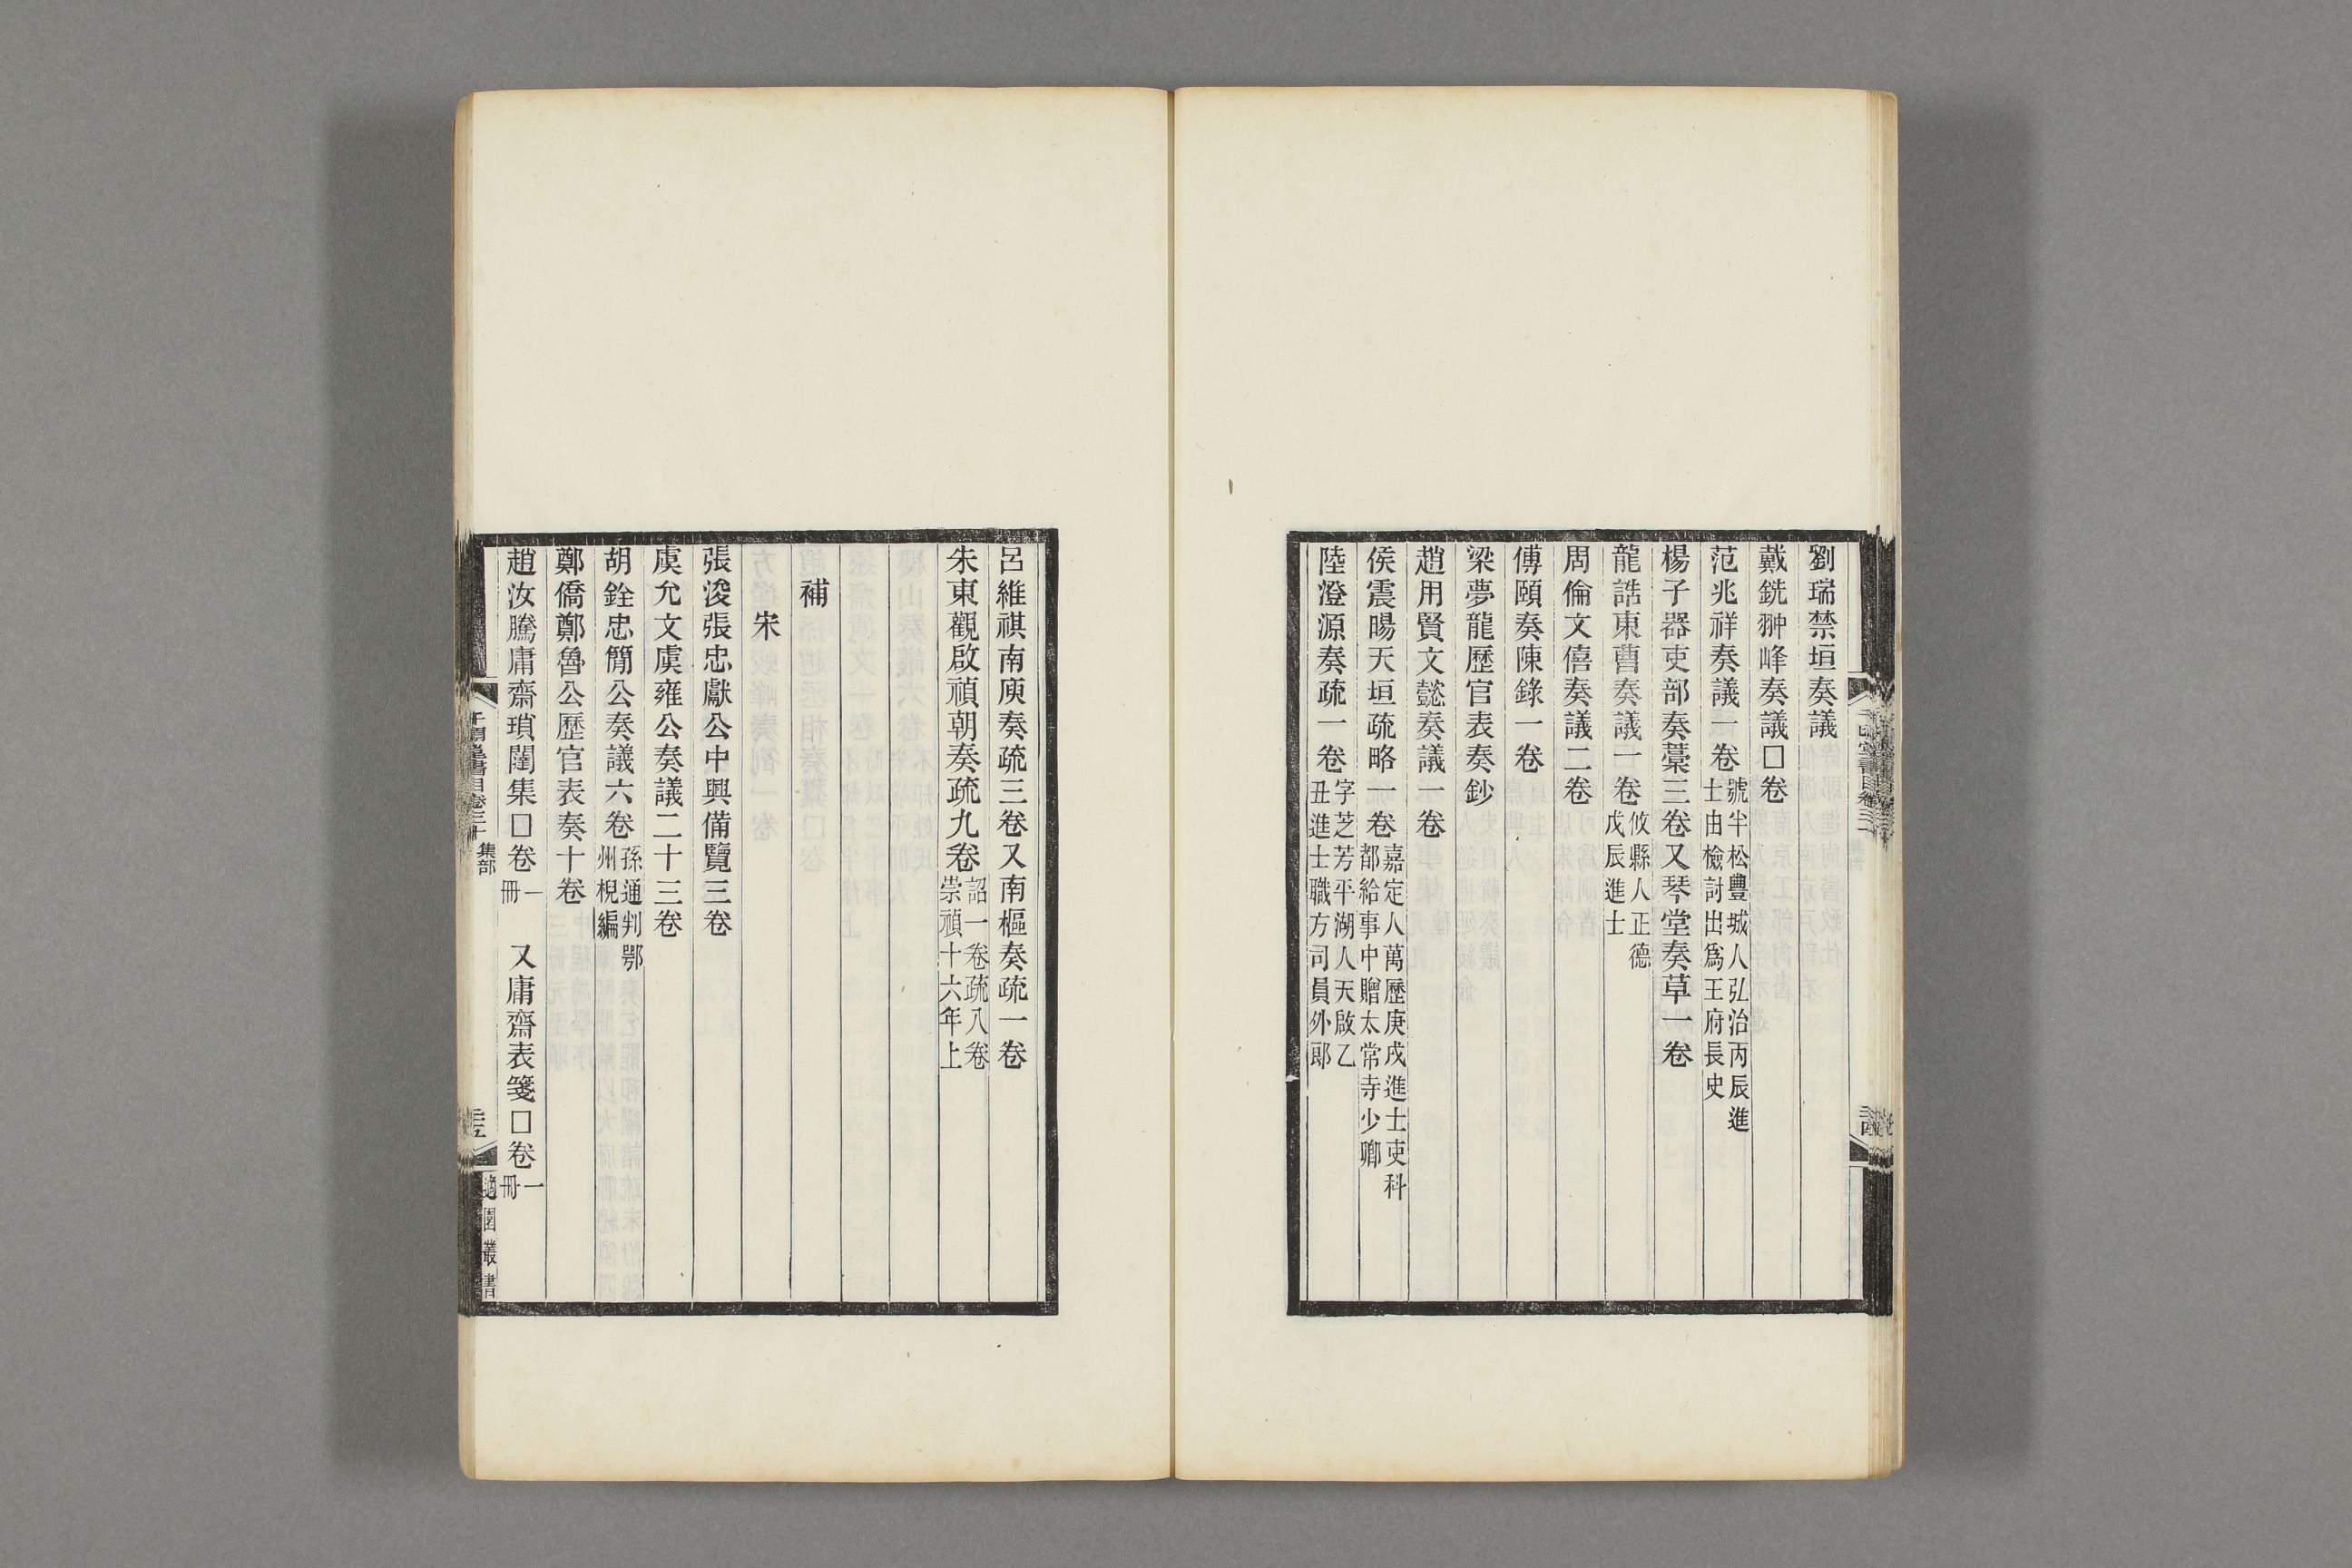 劉瑞禁垣奏議
戴銑翀峰奏議□卷
范兆祥奏議一卷號半松豐城人弘治丙辰進士由檢討出爲王府長史
楊子器吏部奏藁三卷又琴堂奏草一卷
龍誥東曹奏議一卷攸縣人正德戊辰進士
周倫文僖奏議二卷
傅頤奏陳錄一卷
梁夢龍歷官表奏鈔
趙用賢文懿奏議一卷
侯震暘天垣疏略一卷嘉定人萬歷庚戌進士吏科都給事中贈太常寺少卿
陸澄源奏疏一卷字芝芳平湖人天啟乙丑進士職方司員外郎
呂維祺南庾奏疏三卷又南樞奏疏一卷
朱東觀啟禎朝奏疏九卷詔一卷疏八卷崇禎十六年上
補
宋
張浚張忠獻公中興備覽三卷
虞允文虞雍公奏議二十三卷
胡銓忠簡公奏議六卷孫通判鄂州棿編
鄭僑鄭魯公歷官表奏十卷
趙汝騰庸齋瑣闥集□卷一冊 又庸齋表箋□卷一冊
千頃堂書目卷三十 集部
三五
適園叢書